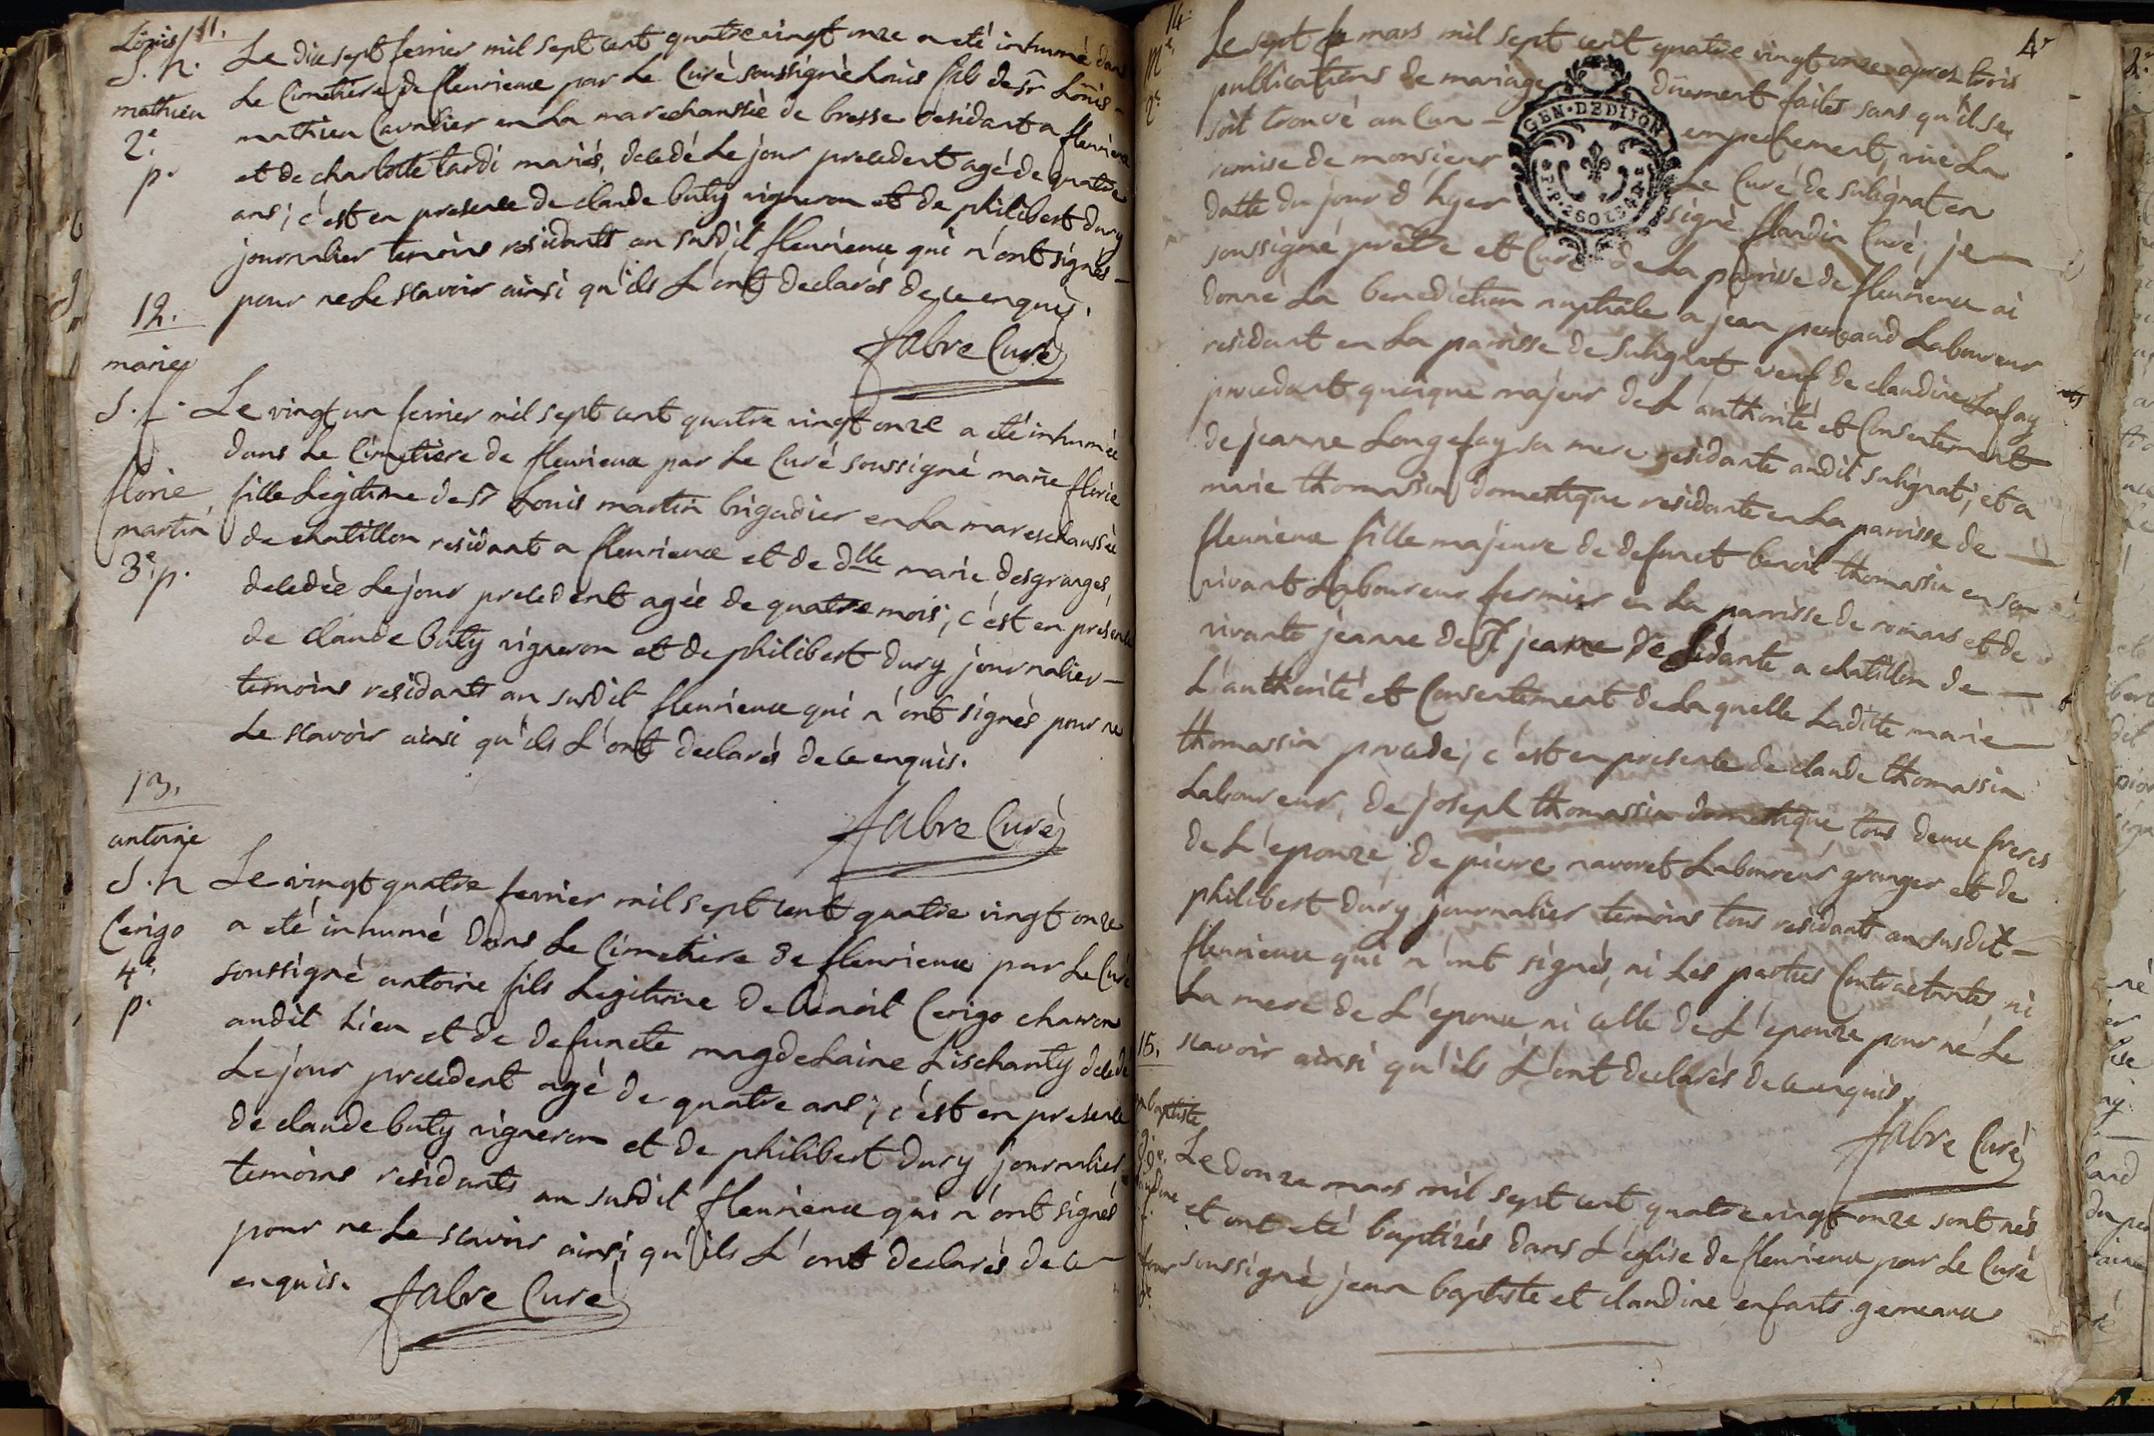 11.
Loüis
S. h.
mathieu
2.e
p.
Le dix sept fevrier mil sept cent quatre vingt onze a eté inhumé dans
Le Cimetière de fleurieux par Le Curé soussigné Loüis fils de Sr Loüis
mathieu Cavalier en La marechaussée de bresse residant a fleurieux
et de charlotte tardi mariés, decedé Le jour precedent agé de quatre
ans; c'est en presence de claude buty vigneron et de philibert dury
journalier temoins residants au susdit fleurieux qui n'ont signés
pour ne Le scavoir ainsi qu'ils L'ont declarés de ce enquis.
fabre Curé
12.
marie
S. f.
florie
martin
3.e p.
Le vingt un fevrier mil sept cent quatre vingt onze a eté inhumée
dans Le Cimetière de fleurieux par Le Curé soussigné marie florie
fille Legitime de Sr Louis martin brigadier en La mareschaussée
de chatillon residant a fleurieux et de dlle marie desgranges,
decedée Le jour precedent agée de quatre mois; c'est en presence
de claude buty vigneron et de philibert dury journalier
temoins residants au susdit fleurieux qui n'ont signés pour ne
Le scavoir ainsi qu'ils L'ont declarés de ce enquis.
fabre Curé
13.
antoine
S. h
Cerigo
4.e
p.
Le vingt quatre fevrier mil sept cent quatre vingt onze
a eté inhumé dans Le Cimetiere de fleurieux par Le Curé
soussigné antoine fils Legitime de benoit Cerigo charron
audit Lieu et de defuncte magdelaine Lischanty decedé
Le jour precedent agé de quatre ans; c'est en presence
de claude buty vigneron et de philibert dury journalier
temoins residants au susdit fleurieux qui n'ont signés
pour ne Le scavoir ainsi qu'ils L'ont declarés de ce
enquis.
fabre Curé
14.
M.e
2.e
4e
Le sept mars mil sept cent quatre vingt onze apres trois
publications de mariage düement faites sans qu'il se
soit trouvé aucun empechement, vüe La
remise de monsieur Le Curé de sulignat en
datte du jour d'hyer signé flandin Curé; je
soussigné prêtre et Curé de La paroisse de fleurieux ai
donné La benediction nuptiale a jean perraud Laboureur
residant en La paroisse de sulignat veuf de claudine Lafay
procedant quoique majeur de L'authorité et Consentement
de jeanne Longefay sa mere residante audit sulignat; et a
marie thomassin domestique residante en La paroisse de
fleurieux fille majeure de defunct benoit thomassin en son
vivant Laboureur fermier en La paroisse de romans et de
vivante jeanne de St jeane residante a chatillon de
L'authorité et Consentement de La quelle Ladite marie
thomassin procede; c'est en presente de claude thomassin
Laboureur, de joseph thomassin domestique tous deux freres
de L'epouze, de pierre navoret Laboureur granger et de
philibert dury journalier temoins tous residant au susdit
fleurieux qui n'ont signés, ni Les parties Contractantes, ni
La mere de L'epoux ni celle de L'epouze pour ne Le
scavoir ainsi qu'ils L'ont declarés de ce enquis.
fabre Curé
GEN. DE DIJON
15.
baptiste
Le douze mars mil sept cent quatre vingt onze sont nés
et ont eté baptizés dans L'eglise de fleurieux par Le Curé
soussigné jean baptiste et claudine enfants gemeaux